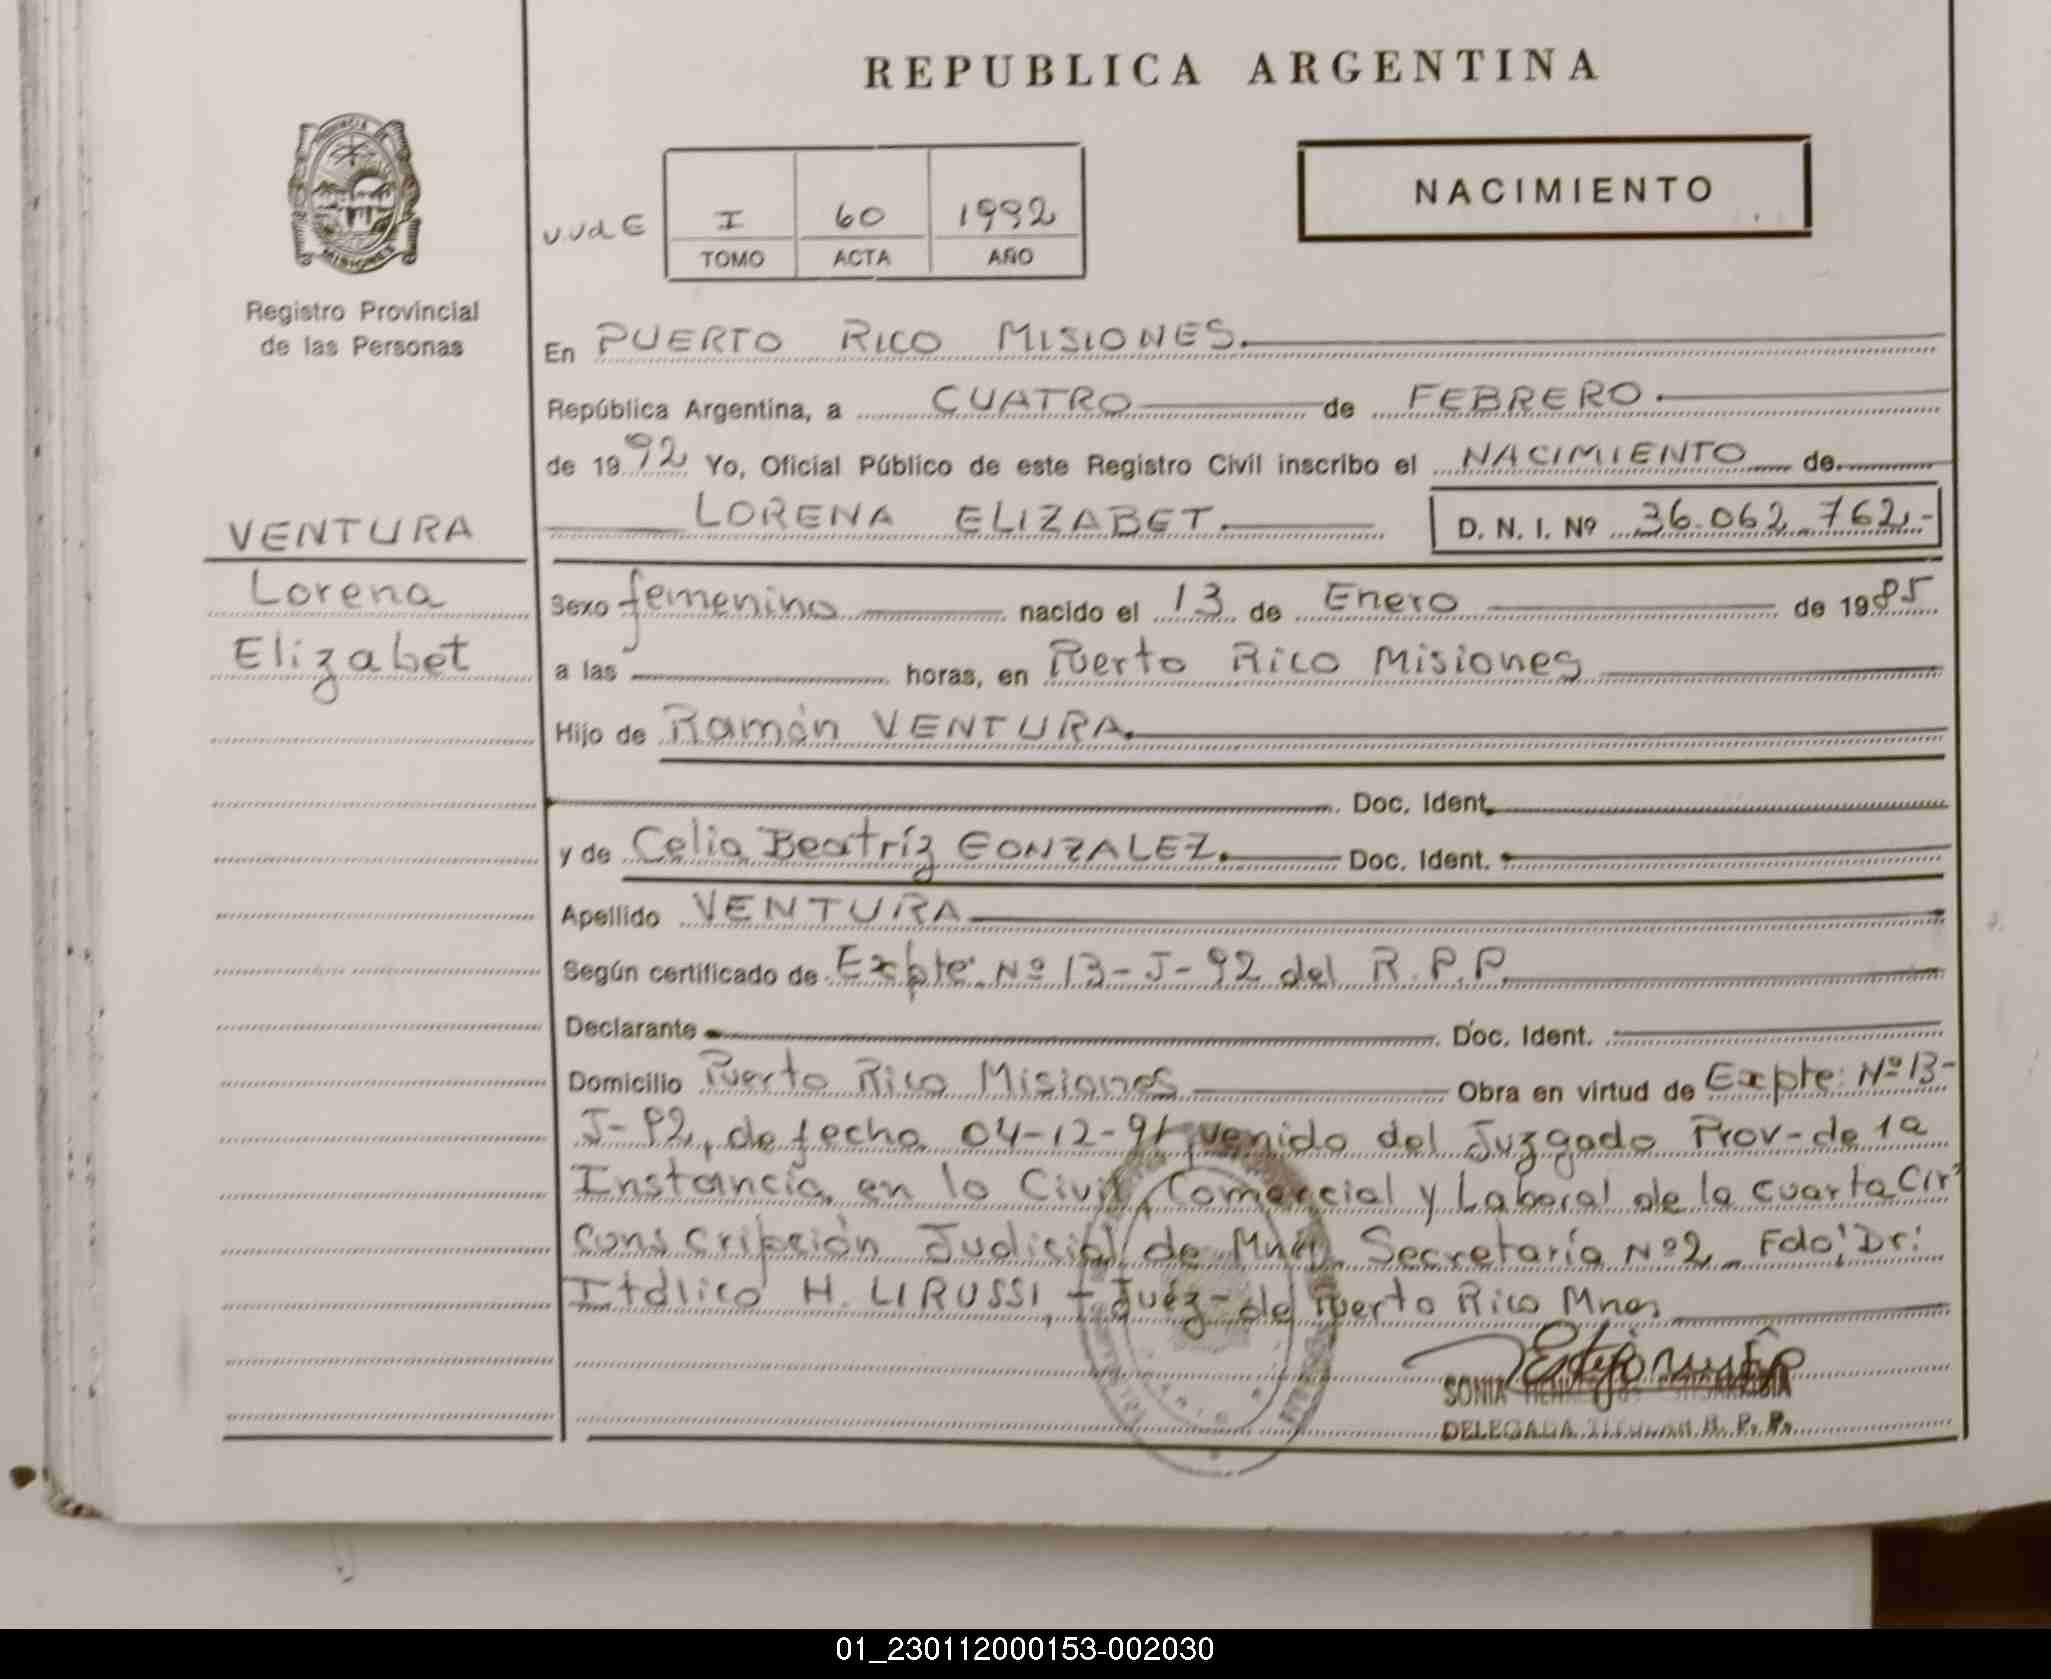 REPUBLICA ARGENTINA
PROVINCIA DE
MISIONES
Registro Provincial
de las Personas
NACIMIENTO
I 60 1992
TOMO ACTA AÑO
En PUERTO RICO MISIONES.
República Argentina, a CUATRO de FEBRERO.
de 1992 Yo, Oficial Público de este Registro Civil inscribo el NACIMIENTO de
LORENA ELIZABET. D. N. I. Nº 36.062.762.-
VENTURA
Lorena
Elizabet
Sexo femenino nacido el 13 de Enero de 1985
a las horas, en Puerto Rico Misiones
Hijo de Ramón VENTURA.
Doc. Ident.
y de Celia Beatríz GONZALEZ. Doc. Ident.
Apellido VENTURA
Según certificado de Expte: Nº 13-J-92 del R.P.P.
Declarante Doc. Ident.
Domicilio Puerto Rico Misiones Obra en virtud de Expte: Nº 13-
J-92, de fecha 04-12-91 venido del Juzgado Prov- de 1a
Instancia en lo Civil, Comercial y Laboral de la cuarta Cir
conscripción Judicial de Mnes. Secretaría Nº 2_ Fdo: Dr:
Itálico H. LIRUSSI, - Juéz - de Puerto Rico Mnes.
SONIA
DELEGADA TITULAR R. P. P.
01_230112000153-002030